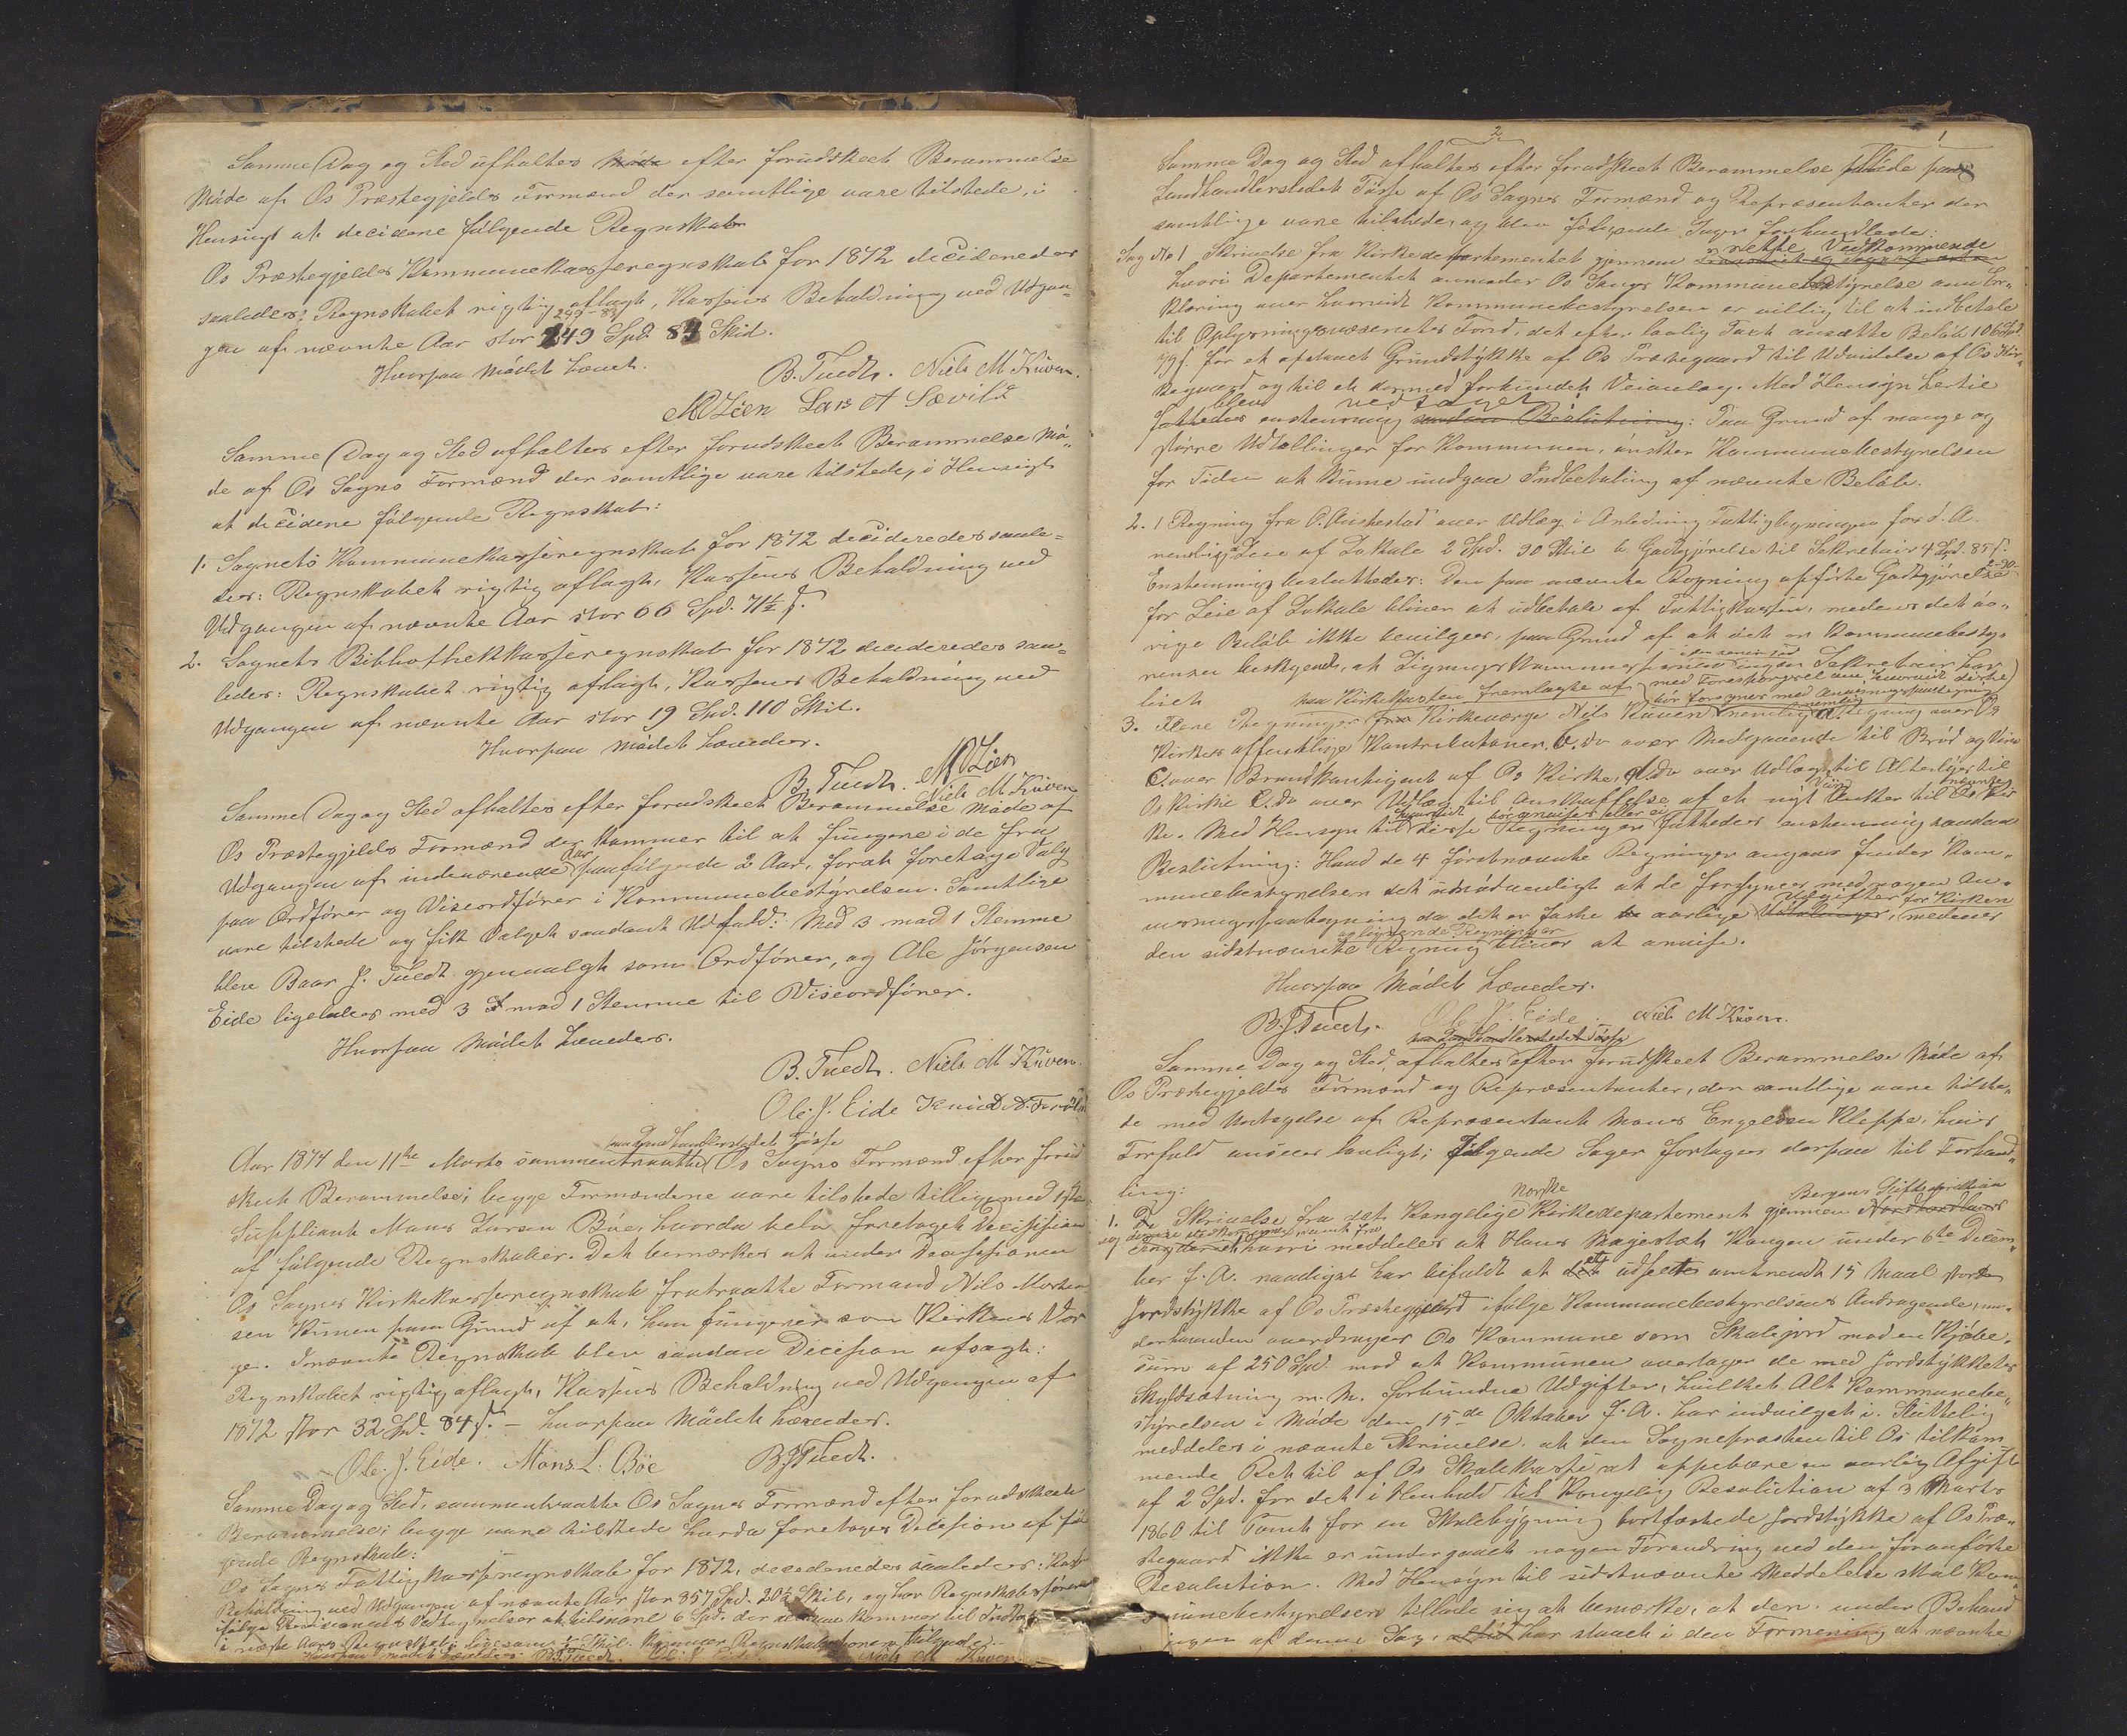 Samme Dag og Sted afholtes Møde efter forudskeet Berammelse
Møde af Os Præstegjelds Formænd der samtlige vare tilstede, i
Hensigt at decidere følgende Regnskab
Os Præstegjelds Kommunekasseregnskab for 1872 decideredes
saaledes: Regnskabet rigtig aflagt, Kassens Beholdning ved Udgan-
gen af nævnte Aar stor 249 Spd. 83 Skil.
Hvorpaa Mødet hævet.
B. Tuedt. Niels M Kuven.
Lars A Sævild
Samme Dag og Sted afholtes efter forudskeet Berammelse Mø-
de af Os Sogns Formænd der samtlige vare tilstede, i Hensigt
at decidere følgende Regnskab:
1. Sognets Kommunekasseregnskab for 1872 decideredes saale-
des: Regnskabet rigtig aflagt, Kassens Beholdning ved
Udgangen af nævnte Aar stor 66 Spd. 71½ s.
2. Sognets Bibliothekkasseregnskab for 1872 decideredes saa-
ledes: Regnskabet rigtig aflagt, Kassens Beholdning ved
Udgangen af nævnte Aar stor 19 Spd. 110 Skil.
Hvorpaa Mødet hævedes.
B. Tuedt. Niels M. Kuven
Samme Dag og Sted afholtes efter forudskeet Berammelse Møde af
Os Præstegjelds Formænd der kommer til at fungere i de fra
Udgangen af indeværende Aar paafølgende 2 Aar, forat foretage Valg
paa Ordfører og Viseordfører i Kommunebestyrelsen. Samtlige
vare tilstede og fik Valget saadant Udfald: Med 3 mod 1 Stemme
blev Baar J. Tuedt gjenvalgt som Ordfører, og Ole Jørgensen
Eide ligeledes med 3 mod 1 Stemme til Viseordfører.
Hvorpaa Mødet hævedes.
B. Tuedt. Niels M Kuven.
Ole. J. Eide
paa Landhandlerstedet Tøsse
Aar 1874 den 11te Marts sammentraadte Os Sogns Formænd efter forud
skeet Berammelse; begge Formændene vare tilstede tilligemed 1ste
Suppliant Mons Larsen Bøe, hvorda blev foretaget Decision
af følgende Regnskaber. Det bemærkes at under Decisionen
Os Sognes Kirkekasseregnskab fratraadte Formand Nils Morten
sen Kuven paa Grund af at, han fungerer som Kirkens Vær
ge. I nævnte Regnskab blev saadan Decision afsagt:
Regnskabet rigtig aflagt, Kassens Beholdning ved Udgangen af
1872 stor 32 Spd. 84 s. – hvorpaa Mødet hævedes.
Ole. J. Eide. Mons. L. Bøe B J Tuedt.
Samme Dag og Sted, sammentraadte Os Sognes Formænd efter forudskeet
Berammelse; begge vare tilstede hvorda foretages Decision af føl
gende Regnskab:
Os Sognes Fattigkasseregnskab for 1872, decideredes saaledes: Kass
Beholdning ved Udgangen af nævnte Aar stor 357 Spd. 20½ Skil, og har Regnskabsføreren
i næste Aars Regnskab
Hvorpaa Mødet hævedes. B J Tuedt. Niels M Kuven
2
1
8
Samme Dag og Sted afholtes efter forudskeet Berammelse Møde paa
Landhandlerstedet Tøsse af Os Sognes Formænd og Repræsentanter der
samtlige vare tilstede, og blev følgende Sager forhandlede:
Sag No 1 Skrivelse fra Kirkedepartementet gjennem rette Vedkommende
hvori Departementet anmoder Os Sogns Kommunebestyrelse om Er-
klæring over hvorvidt Kommunebestyrelsen er villig til at indbetale
til Oplysningsvæsenets Fond, det efter lovlig Taxt ansatte Beløb 106 Spd.
79 s. for et afstaaet Grundstykke af Os Præstegaard til Udvidelse af Os Kir-
kegaard og til et dermed forbundet Veianlæg. Med Hensyn hertil
blev enstemmig vedtaget: Paa Grund af mange og
større Udtællinger for Kommunen, ønsker Kommunebestyrelsen
for Tiden at kunne undgaa Indbetaling af nævnte Beløb.
2. 1 Regning fra O. Auskestad over Udlæg i Anledning Fattigligningen for d. A.
nemlig a Leie af Lokale 2 Spd. 90 Skil b Godtgjørelse til Sekretair 4 Spd. 85 s.
Enstemmig besluttedes: Den paa nævnte Regning opførte Godtgjørelse 2-90
for Leie af Lokale bliver at udbetale af Fattigkassen, medens det øv-
rige Beløb ikke bevilges, paa Grund af at det er Kommunebesty-
relsen bekjendt, at Ligningskommissionen ingen Sekretair har
leiet
3. Flere Regninger paa Kirkekassen fremlagte af Kirkeværge Nils Kuven med Forespørgsel om hvorvidt disse bør forsynes med Anvisningspaategning nemlig a Regning over Os
Kirkes offentlige Kontributioner, b. do over Medgaaende til Brød og Viin
c. over Brandkontingent af Os Kirke, d. do over Udlæg til Alterlys til
Os Kirke e. do over Udlæg til Anskaffelse af et nyt Viin Anker til nævnte Kir
ke. Med Hensyn til hvorvidt disse Regninger bør anvises eller ei fattedes enstemmig saadan
Beslutning: Hvad de 4 førstnævnte Regninger angaar finder Kom-
munebestyrelsen det unødvendigt at de forsynes med nogen An-
visningspaategning da det er faste aarlige Udgifter for Kirken, medens
den sidstnævnte og lignende Regninger bliver at anvise.
Hvorpaa Mødet hævedes.
B J Tuedt. Ole J. Eide. Niels M Kuven.
paa Landhandlerstedet Tøsse
Samme Dag og Sted, afholtes efter forudskeet Berammelse Møde af
Os Præstegjelds Formænd og Repræsentanter, der samtlige vare tilste-
de med Undtagelse af Repræsentant Mons Engelsen Kleppe, hvis
Forfald ansees lovligt; følgende Sager fortages derpaa til Forhand-
ling:
1. Skrivelse fra det Kongelige Norske Kirkedepartement gjennem Bergens Stiftsdirektion
hvori meddeles at Hans Majestæt Kongen under 6te Decem-
ber f. A. naadigst har bifaldt at et udseet omtrendt 15 Maal stort
Jordstykke af Os Præstegaard ifølge Kommunebestyrelsens Andragende, un-
derhaanden overdrages Os Kommune som Skolejord mod en Kjøbe-
sum af 250 Spd. mod at Kommunen overtager de med Jordstykkets
Skyldsætning m. M. forbundne Udgifter, hvilket Alt Kommunebe-
styrelsen i Møde den 15de Oktober f. A. har indvilget i. Sluttelig
meddeles i nævnte Skrivelse, at den Sognepræsten til Os tilkom-
mende Ret til af Os Skolekasse at oppebære en aarlig Afgift
af 2 Spd. for det i Henhold til Kongelig Resolution af 3 Marts
1860 til Tomt for en Skolebygning bortfæstede Jordstykke af Os Præ-
stegaard ikke er undergaaet nogen Forandring ved den foranførte
Resolution. Med Hensyn til sidstnævnte Meddelelse skal Kom-
munebestyrelsen tillade sig at bemærke, at den under Behand
lingen af denne Sag, har staaet i den Formening at nævnte